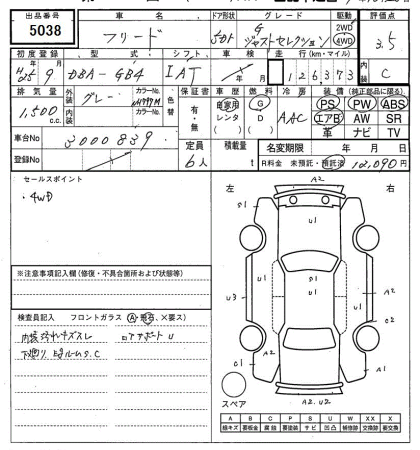 出品番号 車名 ドア形状 グレード 駆動 評価点
5038 フリード 5Dr G ジャストセレクション 2WD 4WD 3.5
初度登録 型式 シフト 車検 走行(km・マイル) 内装
H25 9 DBA-GB4 IAT 126,373 C
排気量 外装 グレー カラーNo. 色替 保証書 車歴 燃料 冷房 装備(純正部品に限る)
1,500 c.c. 内装 カラーNo. 有・無 自家用 レンタ G D AAC PS PW ABS
エアB AW SR
革 ナビ TV
車台No 3000839 定員 積載量 名変期限 年 月 日
登録No 6人 t R料金 未預託・預託済 12,090円
セールスポイント
・4WD
左 右
A2
U1
S1
U1 S1 U1
U3 U2
A2 C2
C1 A2 A1
A2.U2
スペア
※注意事項記入欄(修復・不具合箇所および状態等)
検査員記入 フロントガラス(A・飛石、×要ス)
内装汚れキズスレ
下廻り S.C
A B C P S U W XX X
線キズ 要板金 腐蝕 要塗装 サビ 凹凸 補修跡 交換跡 要交換